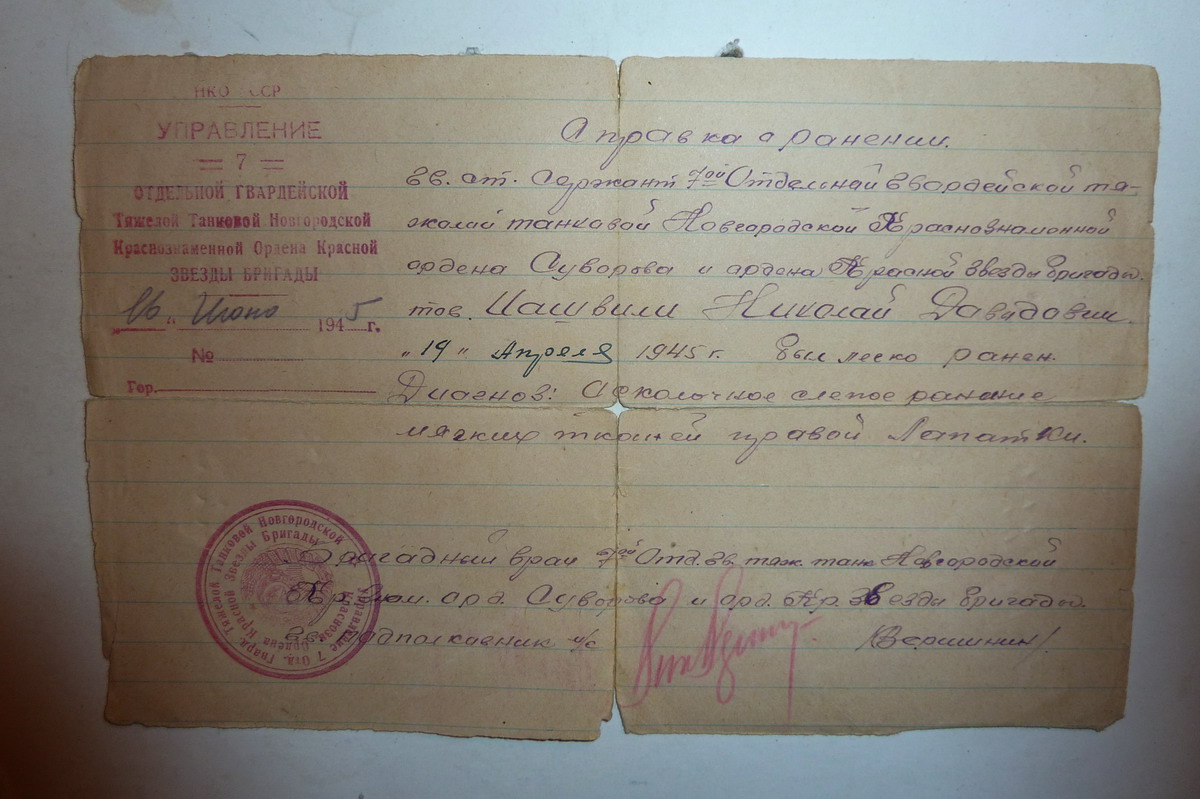 НКО СССР
УПРАВЛЕНИЕ
= 7 =
ОТДЕЛЬНОЙ ГВАРДЕЙСКОЙ
Тяжелой Танковой Новгородской
Краснознаменной Ордена Красной
ЗВЕЗДЫ БРИГАДЫ
16 " Июня 1945 г.
№
Гор.
Справка о ранении.
Гв. ст. Сержант 7ой Отдельной Гвардейской тя-
желой танковой Новгородской Краснознаменной
ордена Суворова и ордена Красной Звезды бригады.
тов. Иашвили Николай Давидович
"19" Апреля 1945 г. был легко ранен.
Диагноз: Осколочное слепое ранение
мягких тканей правой Лапатки.
Бригадный врач 7ой Отд. гв. тяж. танк Новгородской
Кр. Знам. орд. Суворова и орд. Кр. Звезды бригады.
Гв. подполковник м/с /Вершинин/
Управление 7 Отд. Гвард. Тяжелой Танковой Новгородской
Краснозн. Ордена Красной Звезды Бригады